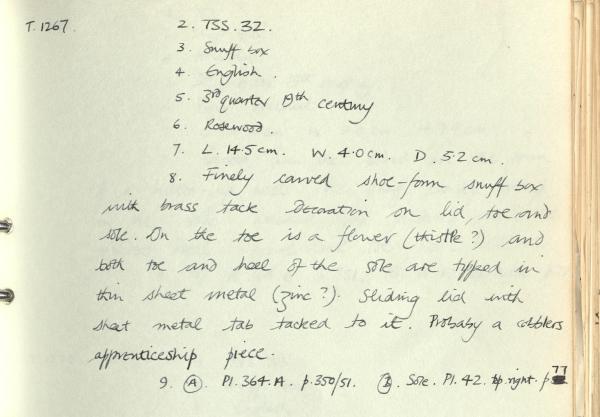 T.1267. 2. TSS.32.
3. Snuff box
4. English.
5. 3rd quarter 19th century
6. Rosewood.
7. L. 14.5cm. W. 4.0cm. D. 5.2cm.
8. Finely carved shoe-form snuff box
with brass tack decoration on lid, toe and
sole. On the toe is a flower (thistle?) and
both toe and heel of the sole are tipped in
thin sheet metal (zinc?). Sliding lid with
sheet metal tab tacked to it. Probaby a cobblers
apprenticeship piece.
9. (A). Pl. 364.A. p.350/51. (B). Sole. Pl. 42. top right. p 77